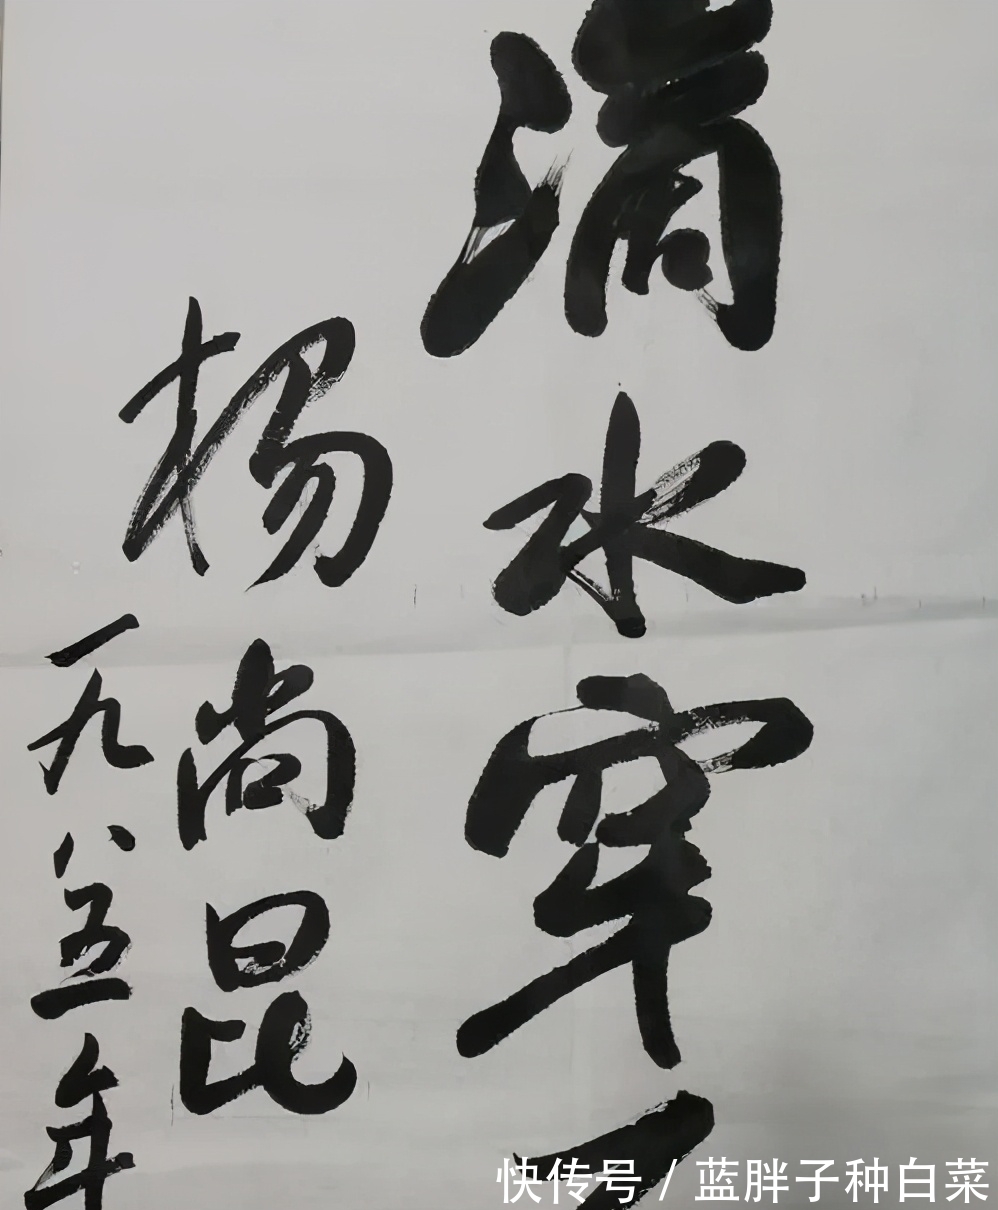 滴水穿
杨尚昆
一九八五年
快传号 / 蓝胖子种白菜